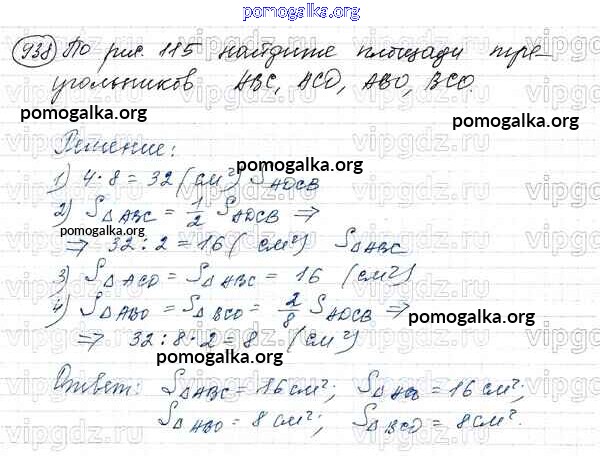 pomogalka.org
938 По рис. 115 найдите площади тре-
угольников ABC, ACD, ABO, BCO.
pomogalka.org pomogalka.org
Решение:
pomogalka.org
1) 4·8=32 (см²) S ADCB
2) S△ABC = 1/2 S ADCB ⇒
pomogalka.org
⇒ 32:2=16 (см²) S△ABC
3) S△ACD = S△ABC = 16 (см²)
pomogalka.org
4) S△ABO = S△BCO = 2/8 S ADCB ⇒
pomogalka.org
⇒ 32:8·2=8 (см²)
pomogalka.org
Ответ: S△ABC = 16 см²; = 16 см²;
S△ABO = 8 см²; S△BCO = 8 см².
pomogalka.org